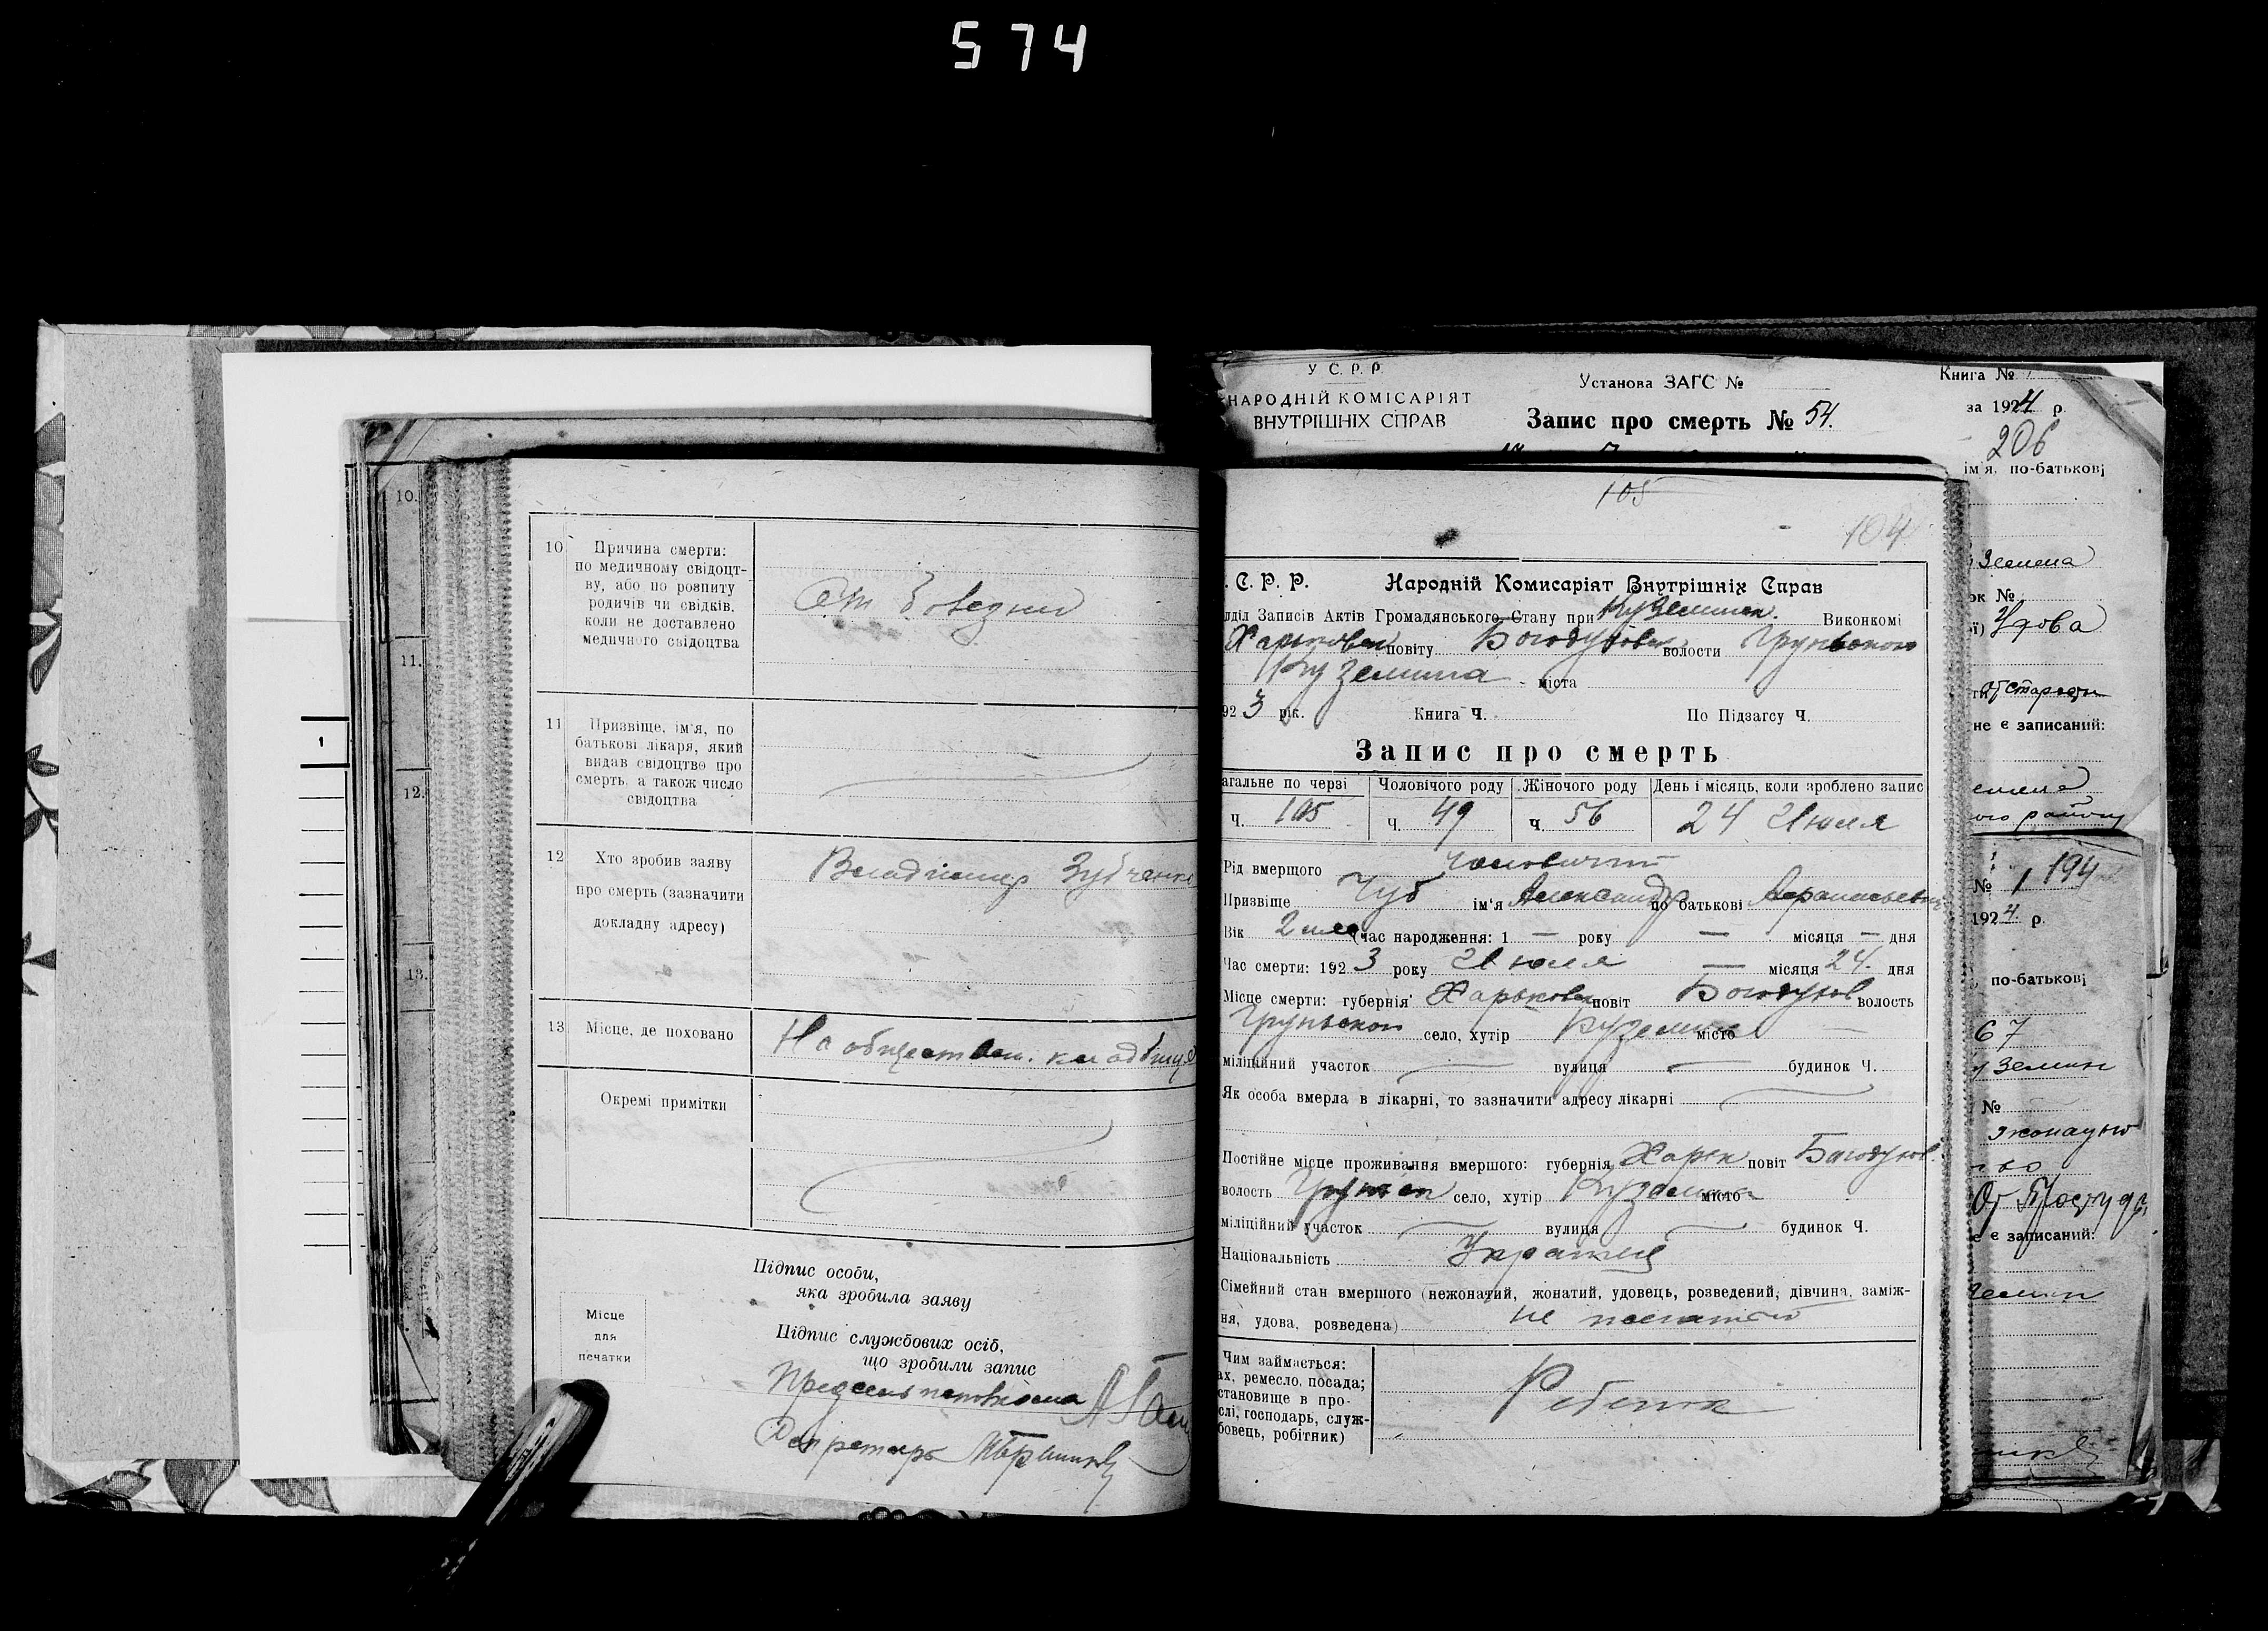 574
10.
11.
12.
13.
1
10 Причина смерти:
по медичному свідоцт-
ву, або по розпиту
родичів чи свідків,
коли не доставлено
медичного свідоцтва
От
11 Призвіще, ім'я, по
батькові лікаря, який
видав свідоцтво про
смерть, а також число
свідоцтва
12 Хто зробив заяву
про смерть (зазначити
докладну адресу)
Владимир Зубченко
13 Місце, де поховано
На обществен. кладбище
Окремі примітки
Підпис особи,
яка зробила заяву
Місце
для
печатки
Підпис службових осіб,
що зробили запис
Секретарь
У С. Р. Р.
НАРОДНІЙ КОМІСАРІЯТ
ВНУТРІШНІХ СПРАВ
Установа ЗАГС №
Запис про смерть № 54.
Книга №
за 1924 р.
206
ім'я, по-батькові
105
104
. С. Р. Р. Народній Комисаріят Внутрішніх Справ
дділ Записів Актів Громадянського Стану при Куземин. Виконкомі
Харьковск повіту Богодухов волости Груньской
Куземина міста
923 рік. Книга Ч. По Підзагсу Ч.
Запис про смерть
агальне по черзі Чоловічого роду Жіночого роду День і місяць, коли зроблено запис
Ч. 105 Ч. 49 Ч. 56 24 Июля
Рід вмерщого
Призвіще Чуб ім'я Александр по батькові Афанасьевич
Вік 2 (час народження: 1 — року — місяця — дня
Час смерти: 1923 року Июля — місяця 24. дня
Місце смерти: губернія Харьковск повіт Богодухов волость
Груньской село, хутір Куземина місто
міліційний участок вулиця будинок Ч.
Як особа вмерла в лікарні, то зазначити адресу лікарні
Постійне місце проживання вмершого: губернія Харьк повіт Богодухов.
волость Груньск село, хутір Куземина місто
міліційний участок вулиця будинок Ч.
Національність Украинец
Сімейний стан вмершого (нежонатий, жонатий, удовець, розведений, дівчина, заміж-
ня, удова, розведена) не
Чим займається:
ах, ремесло, посада;
становище в про-
слі, господарь, служ-
бовець, робітник)
Ребенок
земина
ок №
ї) Удова
от старости
не є записаний:
ого району
№ 1 194
1924 р.
по-батькові
67
уземин
№
От Простуды
е є записаний: